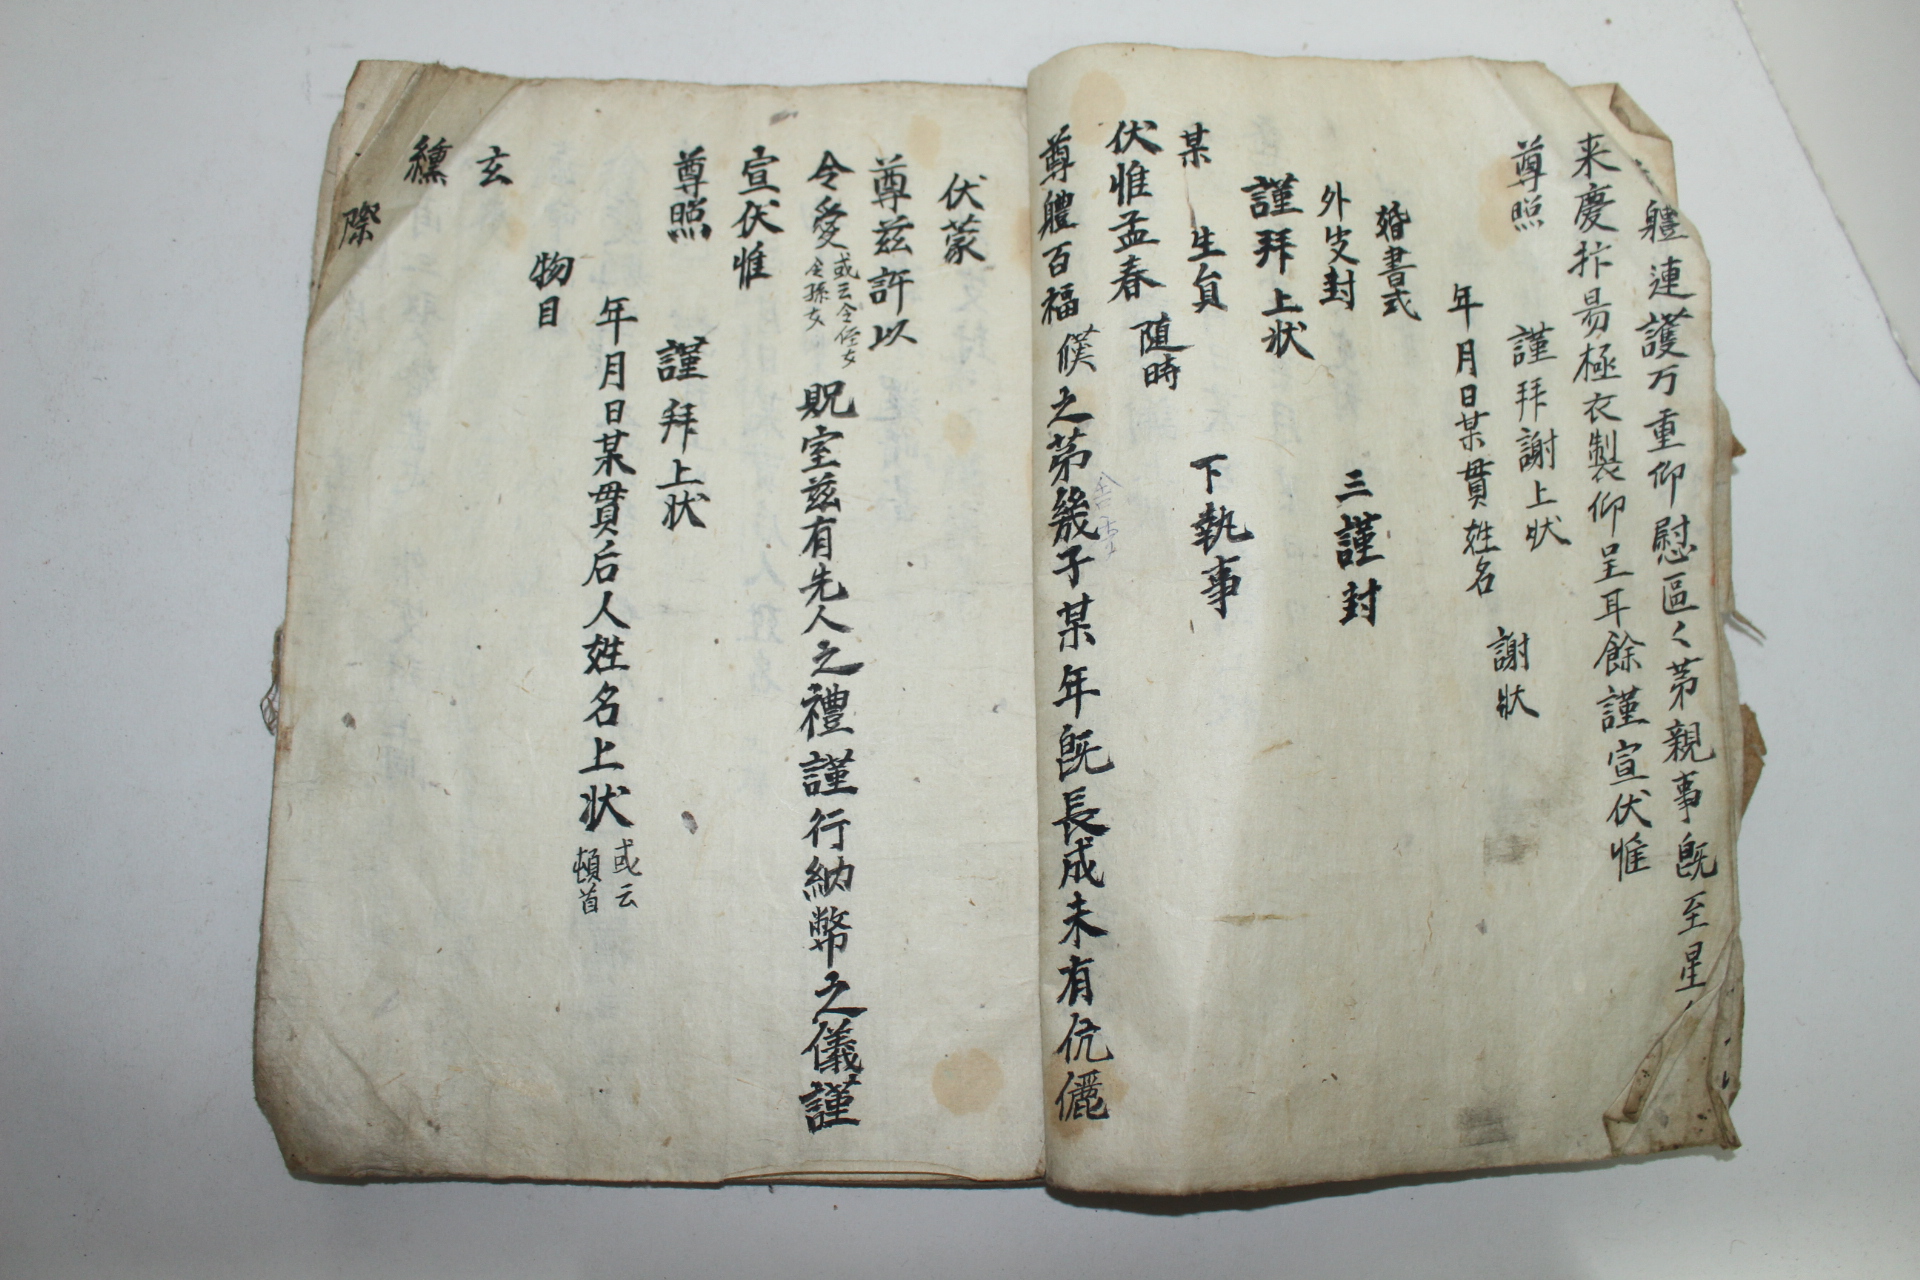 體連護万重仰慰區〻苐親事旣至星
来慶抃昜極衣製仰呈耳餘謹宣伏惟
尊照 謹拜謝上狀
年月日某貫姓名 謝狀
婚書式
外皮封 三謹封
謹拜上狀
某 生員 下執事
伏惟孟春 随時
尊軆百福 僕之苐幾子某年旣長成未有伉儷
伏蒙
尊兹許以
令愛 或云令侄女 令孫女 貺室兹有先人之禮謹行納幣之儀謹
宣伏惟
尊照 謹拜上狀
年月日某貫后人姓名上狀 或云頓首
物目
玄
纁
際